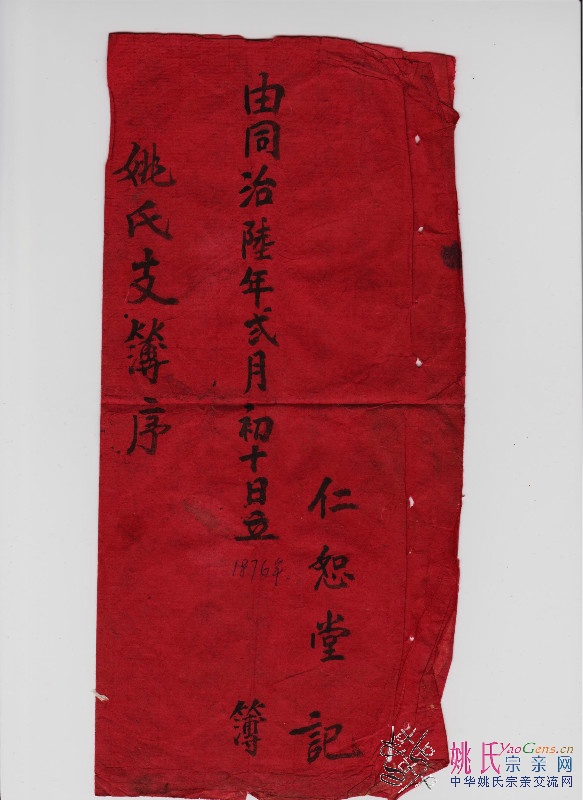 仁恕堂記
由同治陸年弍月初十日立簿
1876年
姚氏支簿序
姚氏宗亲网
YaoGens.cn
中华姚氏宗亲交流网